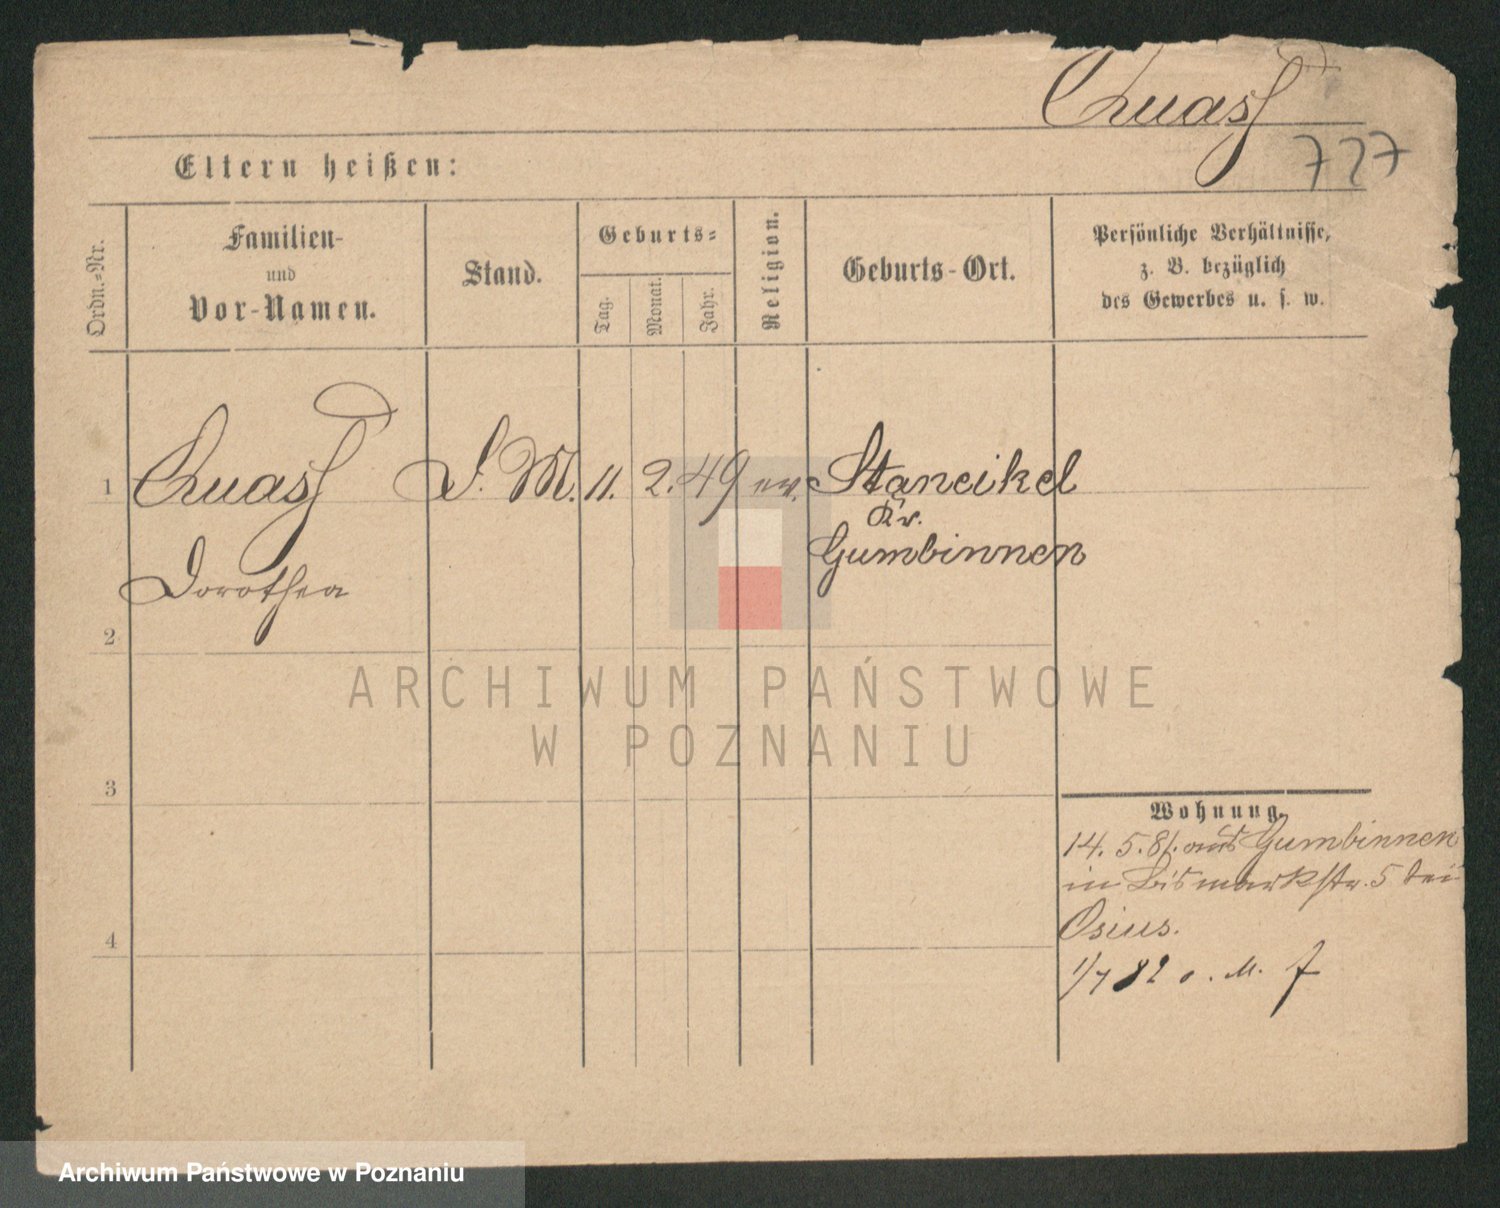 Quast
727
Eltern heißen:
Ordn.-Nr.
Familien-
und
Vor-Namen.
Stand.
Geburts-
Tag.
Monat.
Jahr.
Religion.
Geburts-Ort.
Persönliche Verhältnisse,
z. B. bezüglich
des Gewerbes u. s. w.
1
Quast
D. M.
11.
2.
49
ev.
Staneikel
Kr.
Gumbinnen
Dorothea
2
3
4
Wohnung.
14. 5. 81. aus Gumbinnen
in Bismarkstr. 5 bei
Osius.
1/7 82 o. M.
ARCHIWUM PAŃSTWOWE
W POZNANIU
Archiwum Państwowe w Poznaniu